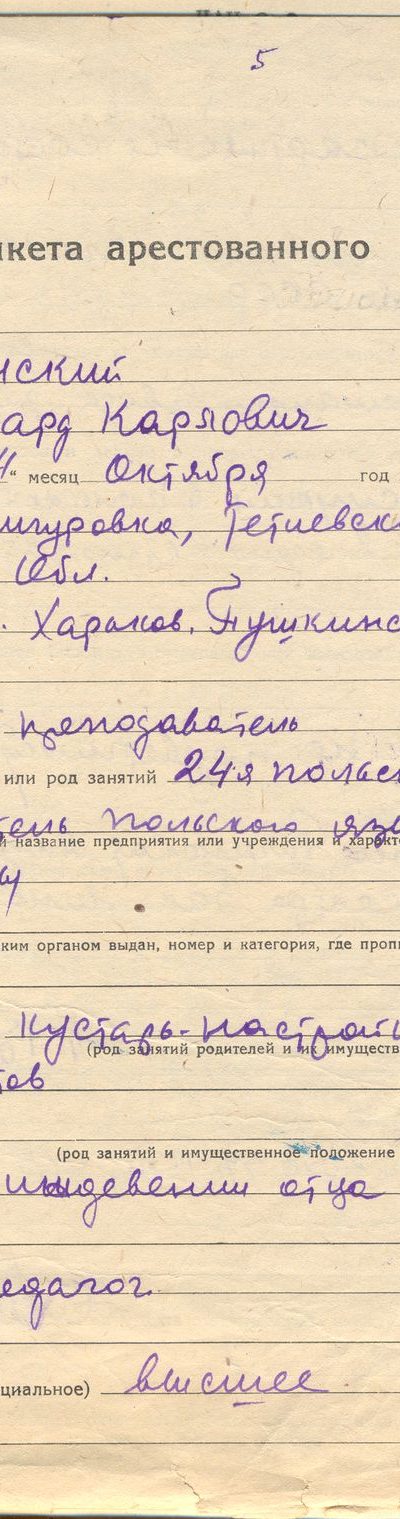 5
нкета арестованного
нский
ард Карлович
" месяц Октября год
игуровка, Тетиевск
Обл.
. Харьков, Пушкинс
преподаватель
или род занятий 24я польск
тель польского язы
и название предприятия или учреждения и характе
ким органом выдан, номер и категория, где пропи
Кустарь-настрой
(род занятий родителей и их имуществ
тов
(род занятий и имущественное положение
иждевении отца
едагог.
циальное) высшее